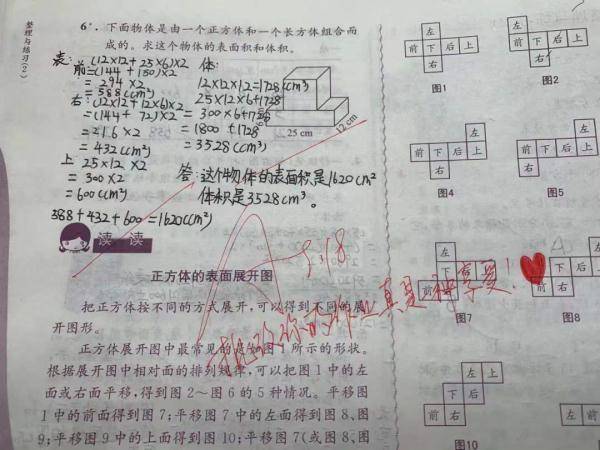 整理与练习(2)
6*. 下面物体是由一个正方体和一个长方体组合而
成的。求这个物体的表面积和体积。
表:
前=(12×12+25×6)×2
=(144+150)×2
=294×2
=588(cm²)
右:(12×12+12×6)×2
=(144+72)×2
=216×2
=432(cm²)
上 25×12×2
=300×2
=600(cm²)
588+432+600=1620(cm²)
体:
12×12×12=1728(cm³)
25×12×6+1728
=300×6+1728
=1800+1728
=3528(cm³)
25 cm
12 cm
答:这个物体的表面积是1620cm²
体积是3528cm³。
读 读
5.18
正方体的表面展开图
批改你的作业真是种享受!
把正方体按不同的方式展开,可以得到不同的展
开图形。
正方体展开图中最常见的是如图1所示的形状。
根据展开图中相对面的排列规律,可以把图1中的左
面或右面平移,得到图2～图6的5种情况。平移图
1中的前面得到图7;平移图7中的左面得到图8、图
9;平移图9中的上面得到图10;平移图7(或图8、图
左
前 下 后 上
右
图1
左
前 下 后
右
图2
左
前 下 后 上
右
图4
左
前 下 后 上
右
图5
左
下 后 上
前 右
图7
左
下 后
前 右
图8
左
下 后 上
前 右
图10
左 上
下 后
前 右